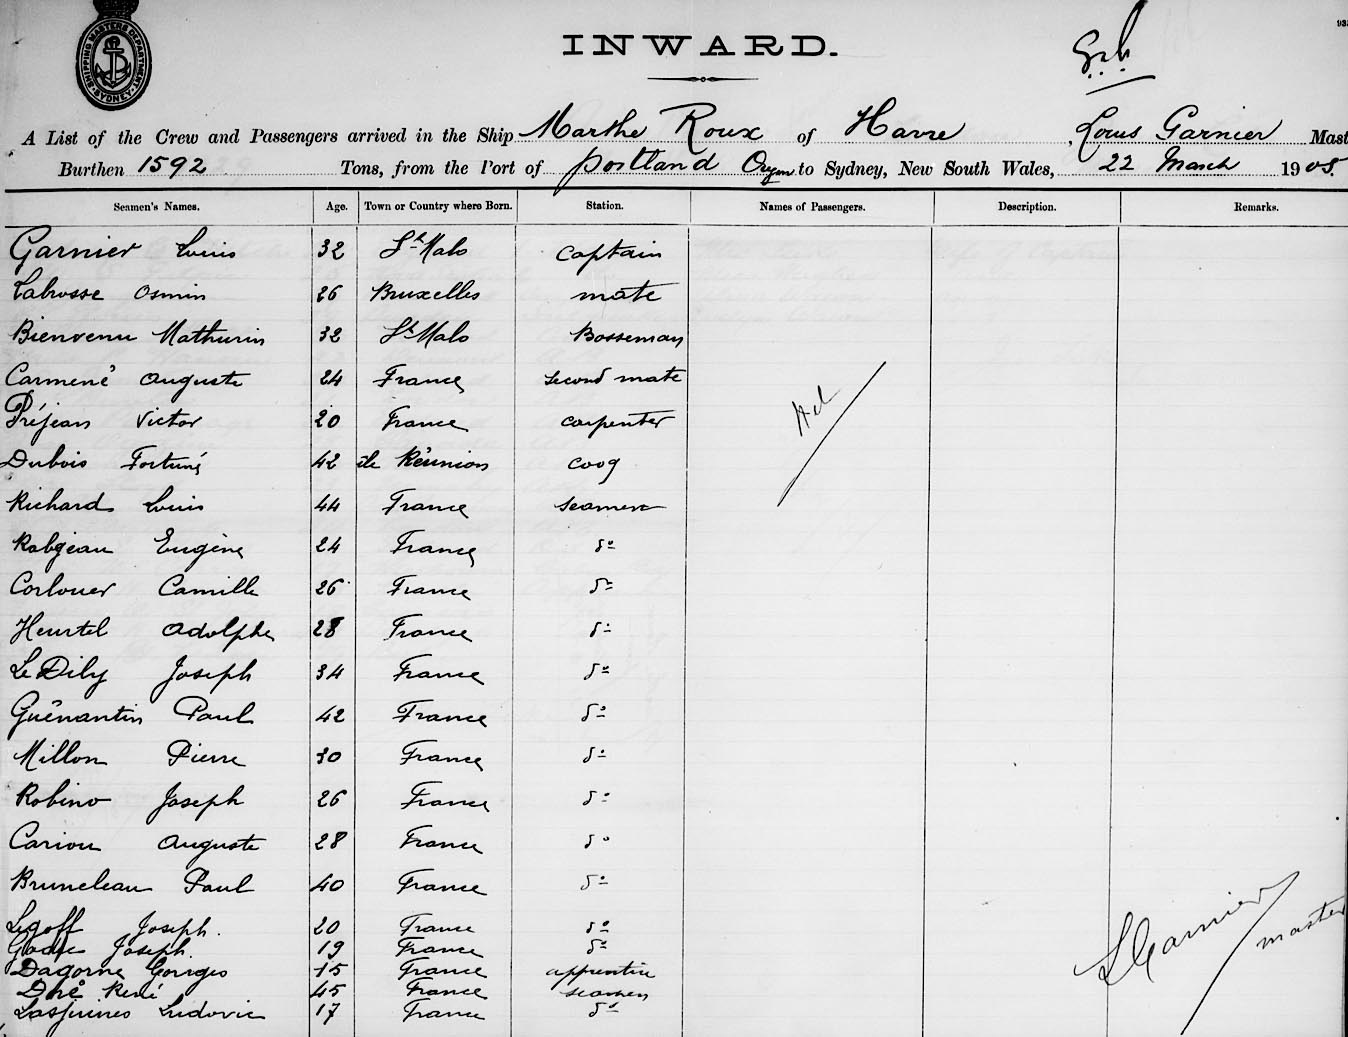 SHIPPING MASTERS DEPARTMENT SYDNEY
INWARD.
A List of the Crew and Passengers arrived in the Ship Marthe Roux of Havre, Louis Garnier Mast
Burthen 1592 Tons, from the Port of Portland to Sydney, New South Wales, 22 March 1905.
Seamen's Names. Age. Town or Country where Born. Station. Names of Passengers. Description. Remarks.
Garnier Louis 32 St Malo captain
Labrosse Osmin 26 Bruxelles mate
Bienvenu Mathurin 32 St Malo Bosseman
Carmené Auguste 24 France second mate
Préjean Victor 20 France carpenter
Dubois Fortuné 42 ile Réunion coog
Richard Louis 44 France seamen
Robgeau Eugène 24 France do
Corlouer Camille 26 France do
Heurtel Adolphe 28 France do
Le Dily Joseph 34 France do
Guénantin Paul 42 France do
Millon Pierre 30 France do
Robino Joseph 26 France do
Cariou Auguste 28 France do
Bruneleau Paul 40 France do
Legoff Joseph. 20 France do
Joseph. 19 France do
Dagorne Georges 15 France apprentice
René 45 France seamen
Ludovic 17 France do
LGarnier
master